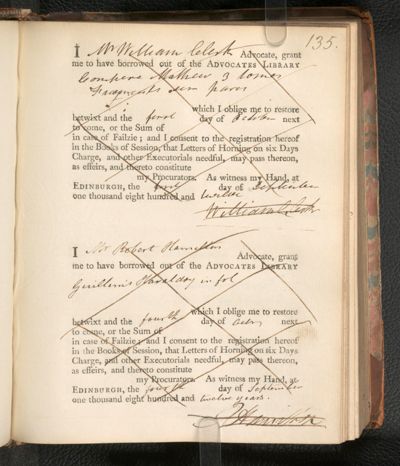 135.
I Mr William Clerk Advocate, grant
me to have borrowed out of the ADVOCATES LIBRARY
Compere Mathieu 3 tomes
which I oblige me to restore
betwixt and the first day of October next
to come, or the Sum of
in case of Failzie; and I consent to the registration hereof
in the Books of Session, that Letters of Horning on six Days
Charge, and other Executorials needful, may pass thereon,
as effeirs, and thereto constitute
my Procurators. As witness my Hand, at
EDINBURGH, the first day of September
one thousand eight hundred and twelve
William Clerk
I Mr Robert Hamilton
Advocate, grant
me to have borrowed out of the ADVOCATES LIBRARY
Guillim's Heraldry in fol
which I oblige me to restore
betwixt and the fourth day of next
to come, or the Sum of
in case of Failzie; and I consent to the registration hereof
in the Books of Session, that Letters of Horning on six Days
Charge, and other Executorials needful, may pass thereon,
as effeirs, and thereto constitute
my Procurators. As witness my Hand, at
EDINBURGH, the fourth day of September
one thousand eight hundred and twelve years.